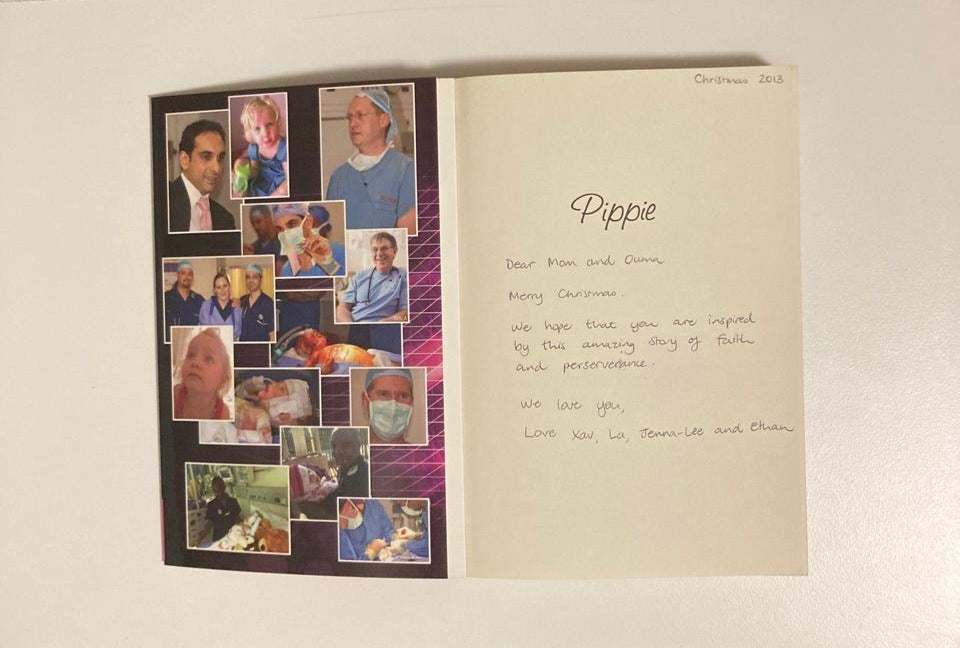 Christmas 2013
Pippie
Dear Mom and Ouma
Merry Christmas.
We hope that you are inspired
by this amazing story of faith
and perserverance.
We love you,
Love Xav, La, Jenna-Lee and Ethan